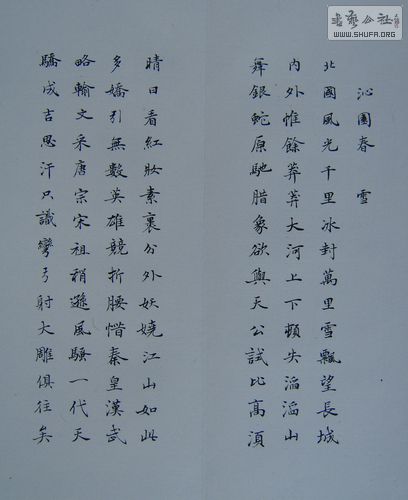 沁園春 雪
北國風光千里冰封萬里雪飄望長城
內外惟餘莽莽大河上下頓失滔滔山
舞銀蛇原馳腊象欲與天公試比高須
晴日看紅妝素裹分外妖嬈江山如此
多嬌引無數英雄競折腰惜秦皇漢武
略輸文采唐宗宋祖稍遜風騷一代天
驕成吉思汗只識彎弓射大雕俱往矣
書藝公社
WWW.SHUFA.ORG